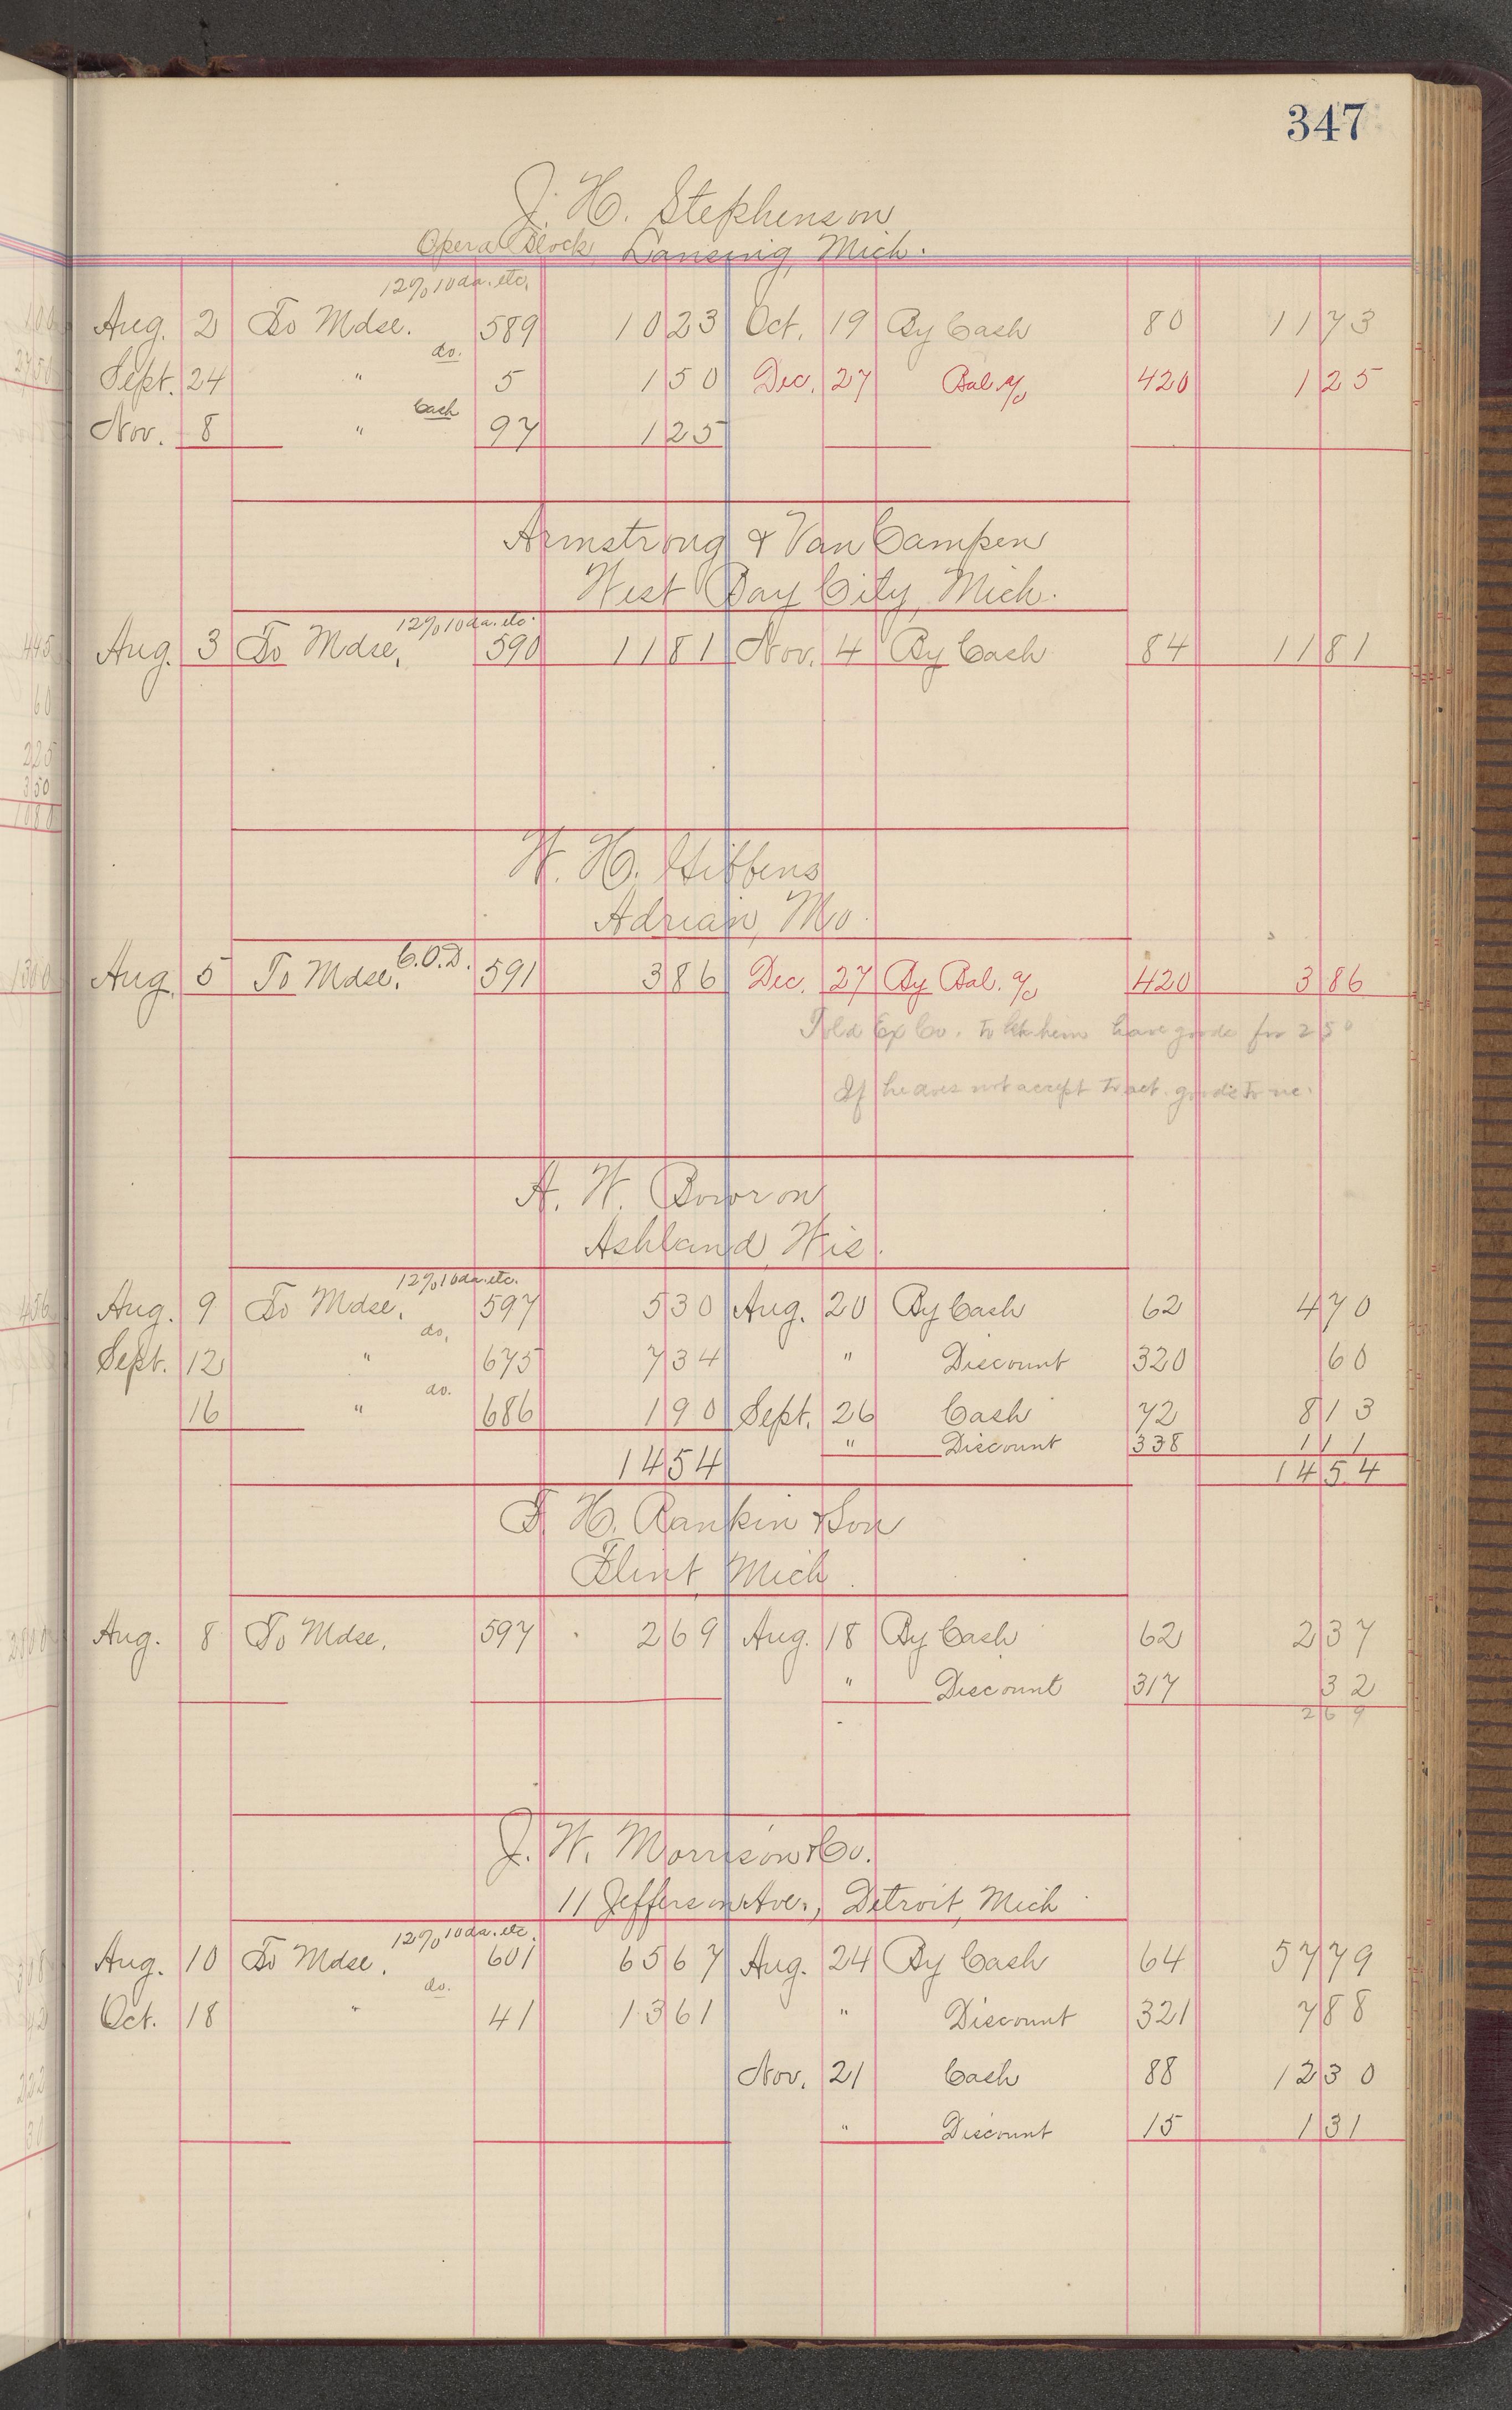 347
J. H. Stephenson
Opera Block, Lansing, Mich.
12% 10 da. etc.
Aug. 2 To Mdse. 589 1023 Oct. 19 By Cash 80 1173
do.
Sept. 24 " 5 150 Dec. 27 Bal. a/c 420 125
Cash
Nov. 8 " 97 125
Armstrong & Van Campen
West Bay City, Mich.
12% 10 da. etc.
Aug. 3 To Mdse. 590 1181 Nov. 4 By Cash 84 1181
W. H. Gibbens
Adrian, Mo.
C.O.D.
Aug. 5 To Mdse. 591 386 Dec. 27 By Bal. a/c 420 386
Told Ex Co. to let him have goods for 250
If he does not accept to ret. goods to me.
A. W. Bowron
Ashland, Wis.
12% 10 da. etc.
Aug. 9 To Mdse. 597 530 Aug. 20 By Cash 62 470
do.
Sept. 12 " 675 734 " Discount 320 60
do.
16 " 686 190 Sept. 26 Cash 72 813
" Discount 338 111
1454 1454
F. H. Rankin & Son
Flint, Mich.
Aug. 8 To Mdse. 597 269 Aug. 18 By Cash 62 237
" Discount 317 32
269
J. W. Morrison & Co.
11 Jefferson Ave., Detroit, Mich.
12% 10 da. etc.
Aug. 10 To Mdse. 601 6567 Aug. 24 By Cash 64 5779
do.
Oct. 18 " 41 1361 " Discount 321 788
Nov. 21 Cash 88 1230
" Discount 15 131